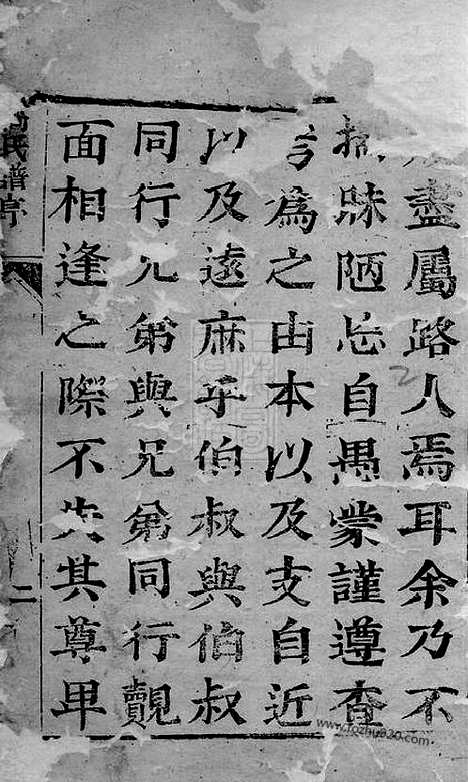 盡屬路人焉耳余乃不
揣昧陋忘自愚蒙謹遵查
言爲之由本以及支自近
以及遠庶乎伯叔與伯叔
同行兄弟與兄弟同行覿
面相逢之際不失其尊卑
氏譜序
二
www.fozhu920.com